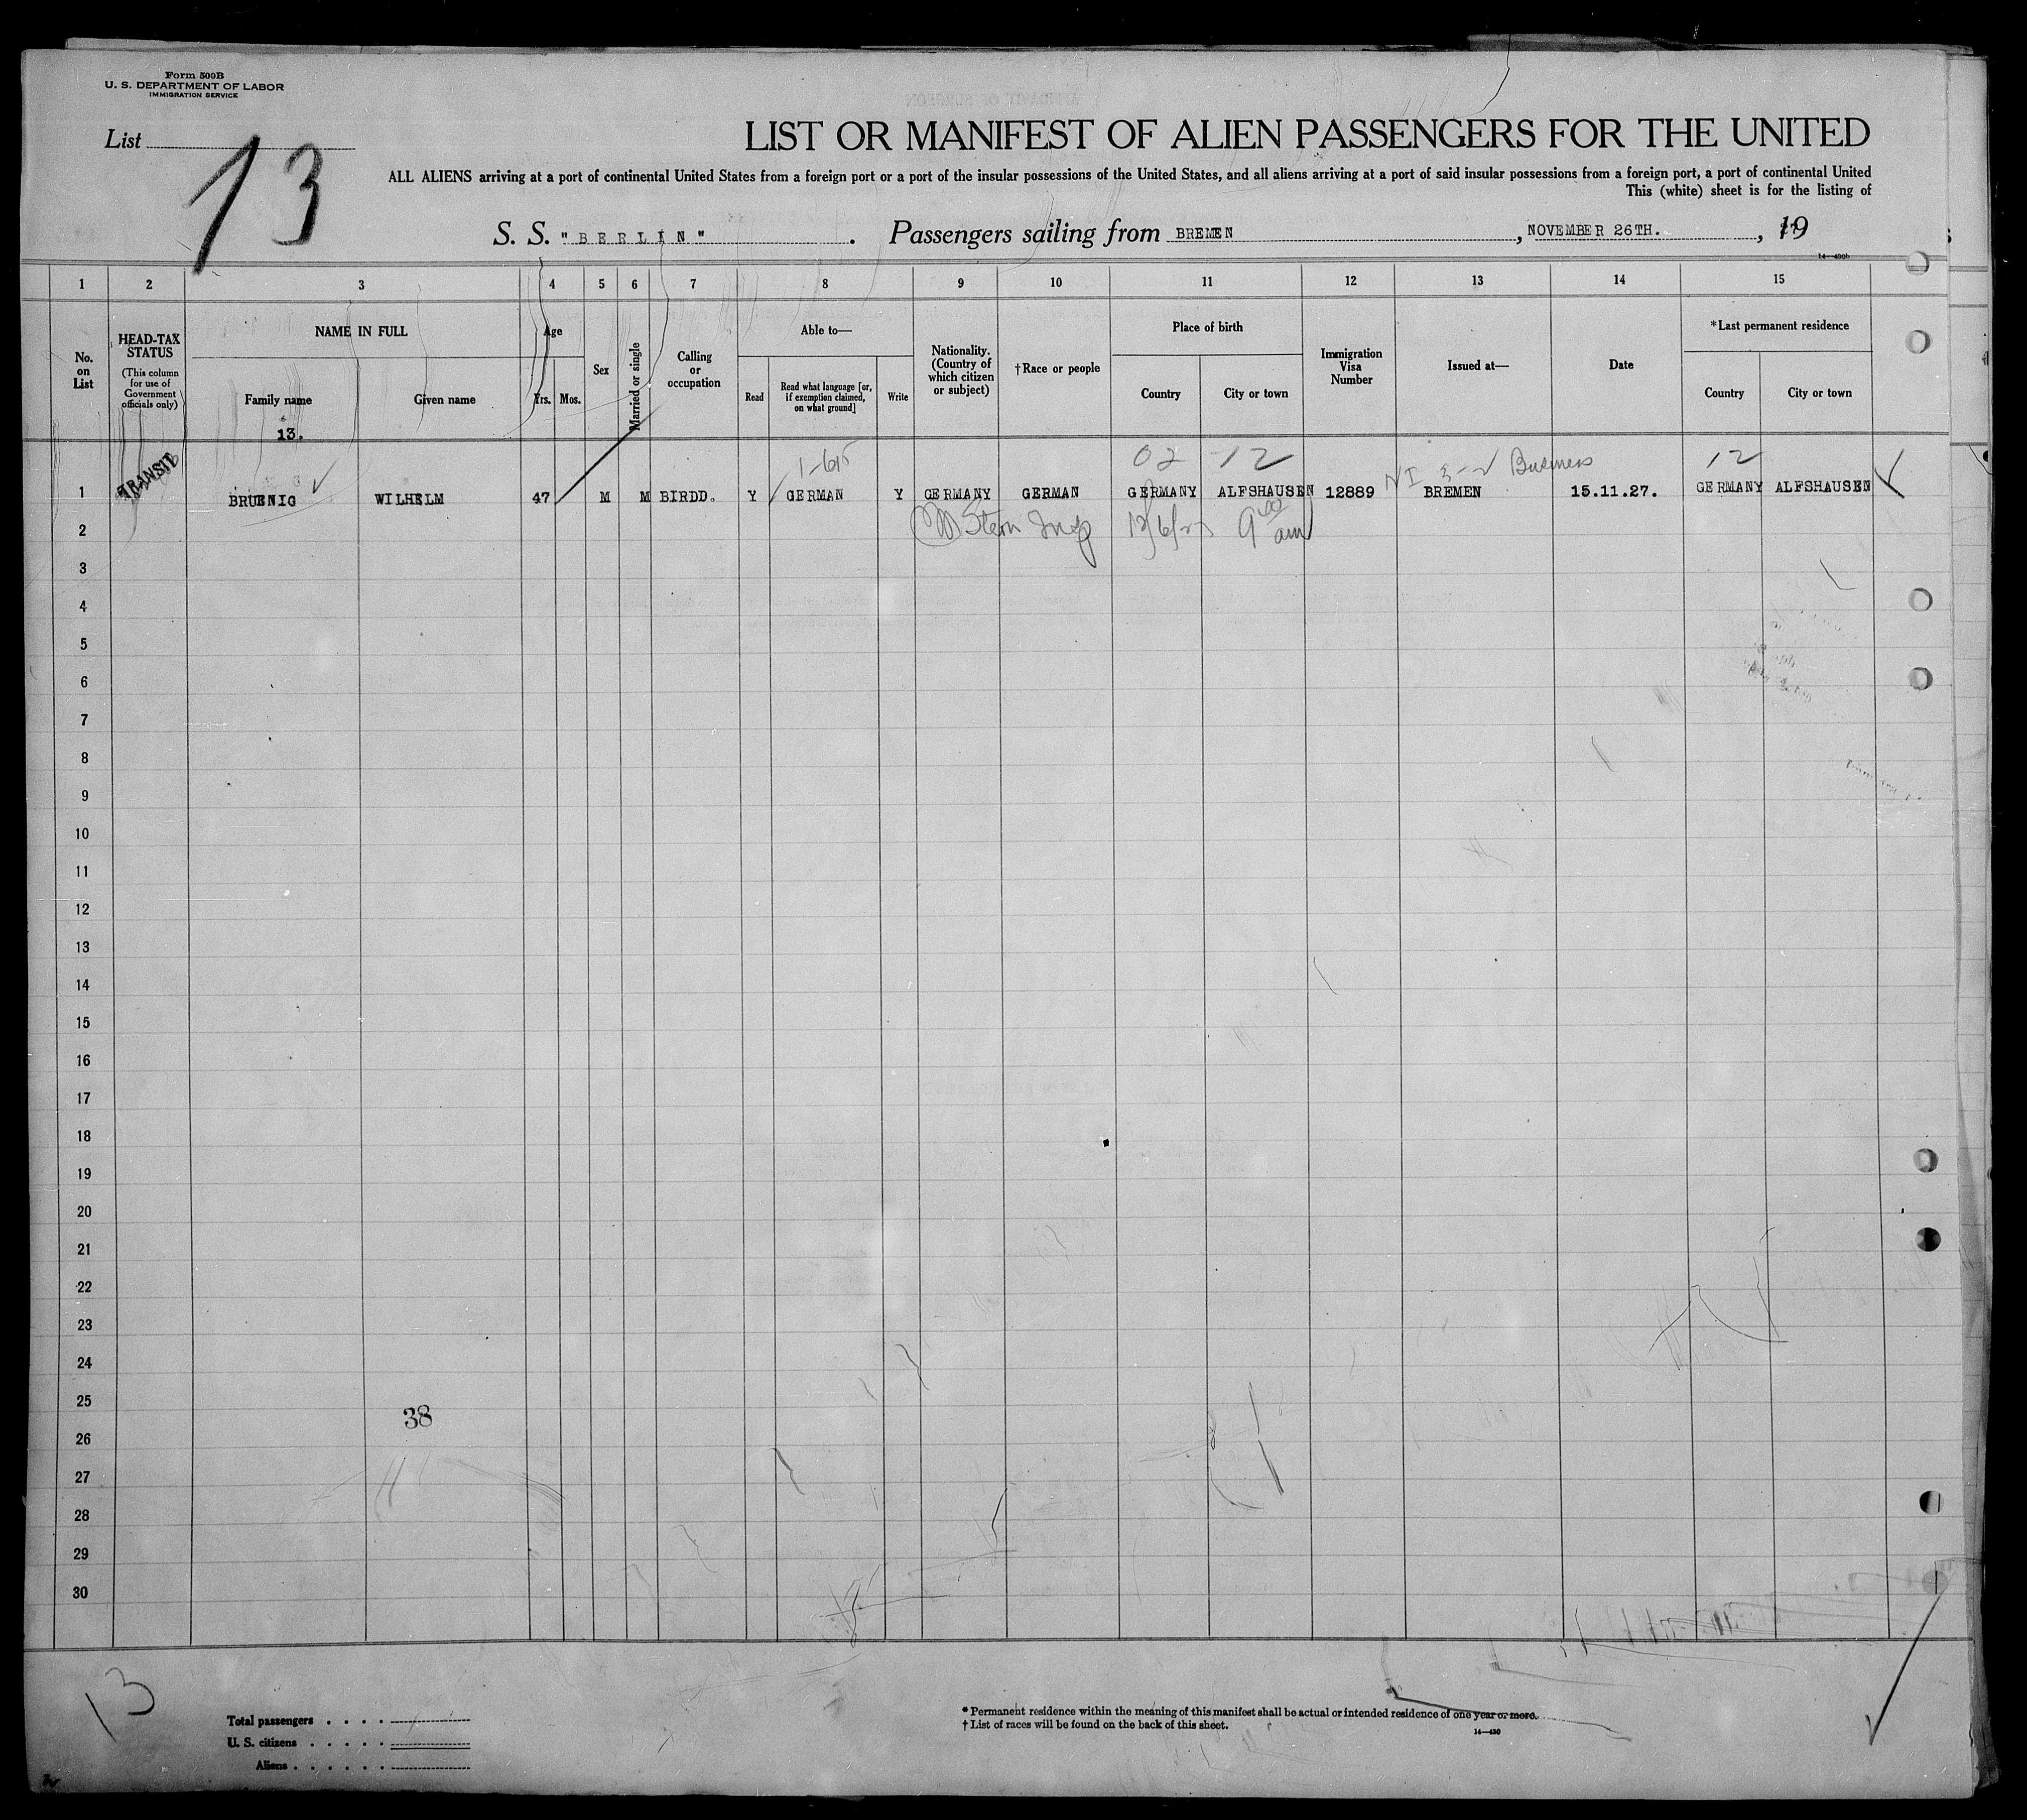 Form 500B
U. S. DEPARTMENT OF LABOR
IMMIGRATION SERVICE
List 13
LIST OR MANIFEST OF ALIEN PASSENGERS FOR THE UNITED
ALL ALIENS arriving at a port of continental United States from a foreign port or a port of the insular possessions of the United States, and all aliens arriving at a port of said insular possessions from a foreign port, a port of continental United
This (white) sheet is for the listing of
S. S. "BERLIN". Passengers sailing from BREMEN, NOVEMBER 26TH., 19
14—430b
1 2 3 4 5 6 7 8 9 10 11 12 13 14 15
No. on List
HEAD-TAX STATUS
(This column for use of Government officials only)
NAME IN FULL
Family name
Given name
13.
Age
Yrs. Mos.
Sex
Married or single
Calling or occupation
Able to—
Read
Read what language [or, if exemption claimed, on what ground]
Write
Nationality. (Country of which citizen or subject)
†Race or people
Place of birth
Country
City or town
Immigration Visa Number
Issued at—
Date
*Last permanent residence
Country
City or town
02 12 Business 12
1 TRANSIT BRUENIG WILHELM 47 M M BIRDD. Y GERMAN Y GERMANY GERMAN GERMANY ALFSHAUSEN 12889 BREMEN 15.11.27. GERMANY ALFSHAUSEN
2 Stern Insp 12/6/27 9 00 am
3
4
5
6
7
8
9
10
11
12
13
14
15
16
17
18
19
20
21
22
23
24
25
38
26
27
28
29
30
13
Total passengers
U. S. citizens
Aliens
* Permanent residence within the meaning of this manifest shall be actual or intended residence of one year or more.
† List of races will be found on the back of this sheet.
14—430